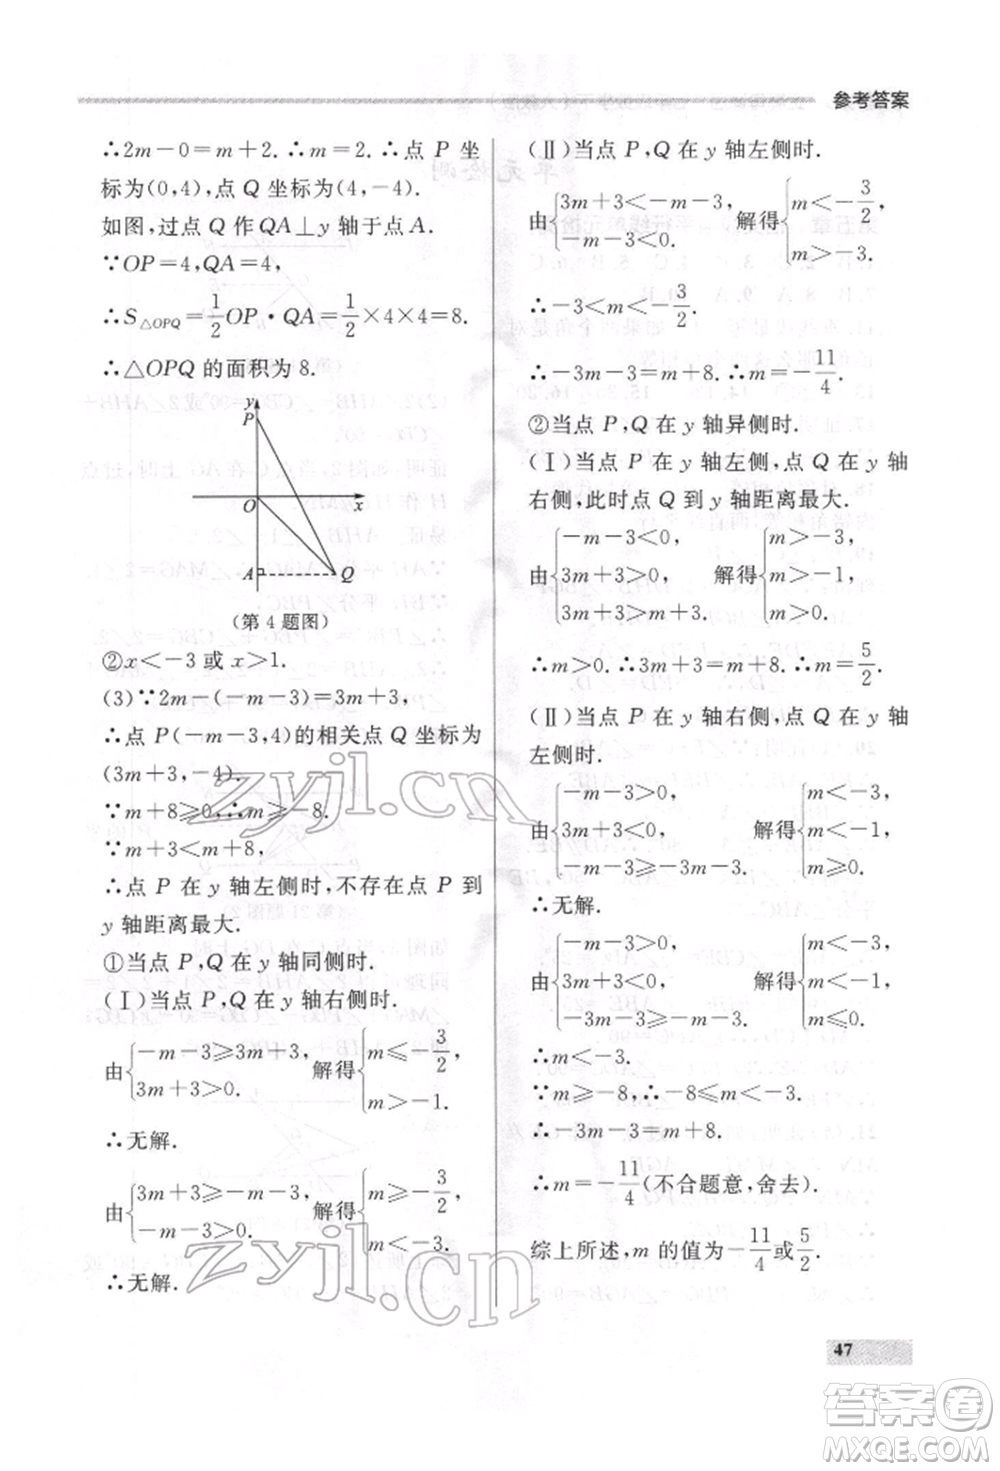 参考答案
∴2m－0＝m＋2.∴m＝2.∴点 P 坐
标为(0,4),点 Q 坐标为(4,－4).
如图,过点 Q 作 QA⊥y 轴于点 A.
∵OP＝4,QA＝4,
∴S△OPQ＝1/2 OP·QA＝1/2×4×4＝8.
∴△OPQ 的面积为 8.
y
P
O
x
A
Q
(第 4 题图)
②x＜－3 或 x＞1.
(3)∵2m－(－m－3)＝3m＋3,
∴点 P(－m－3,4)的相关点 Q 坐标为
(3m＋3,－4).
∵m＋8≥0,∴m≥－8.
∵m＋3＜m＋8,
∴点 P 在 y 轴左侧时,不存在点 P 到
y 轴距离最大.
①当点 P,Q 在 y 轴同侧时.
(Ⅰ)当点 P,Q 在 y 轴右侧时.
由{－m－3≥3m＋3, 3m＋3＞0. 解得{m≤－3/2, m＞－1.
∴无解.
由{3m＋3≥－m－3, －m－3＞0. 解得{m≥－3/2, m＜－3.
∴无解.
(Ⅱ)当点 P,Q 在 y 轴左侧时.
由{3m＋3＜－m－3, －m－3＜0. 解得{m＜－3/2, m＞－3.
∴－3＜m＜－3/2.
∴－3m－3＝m＋8.∴m＝－11/4.
②当点 P,Q 在 y 轴异侧时.
(Ⅰ)当点 P 在 y 轴左侧,点 Q 在 y 轴
右侧,此时点 Q 到 y 轴距离最大.
由{－m－3＜0, 3m＋3＞0, 3m＋3＞m＋3. 解得{m＞－3, m＞－1, m＞0.
∴m＞0.∴3m＋3＝m＋8.∴m＝5/2.
(Ⅱ)当点 P 在 y 轴右侧,点 Q 在 y 轴
左侧时.
由{－m－3＞0, 3m＋3＜0, －m－3≥－3m－3. 解得{m＜－3, m＜－1, m≥0.
∴无解.
由{－m－3＞0, 3m＋3＜0, －3m－3≥－m－3. 解得{m＜－3, m＜－1, m≤0.
∴m＜－3.
∵m≥－8,∴－8≤m＜－3.
∴－3m－3＝m＋8.
∴m＝－11/4(不合题意,舍去).
综上所述,m 的值为－11/4或5/2.
47
zyjl.cn
zyjl.cn
答案圈
MXQE.COM